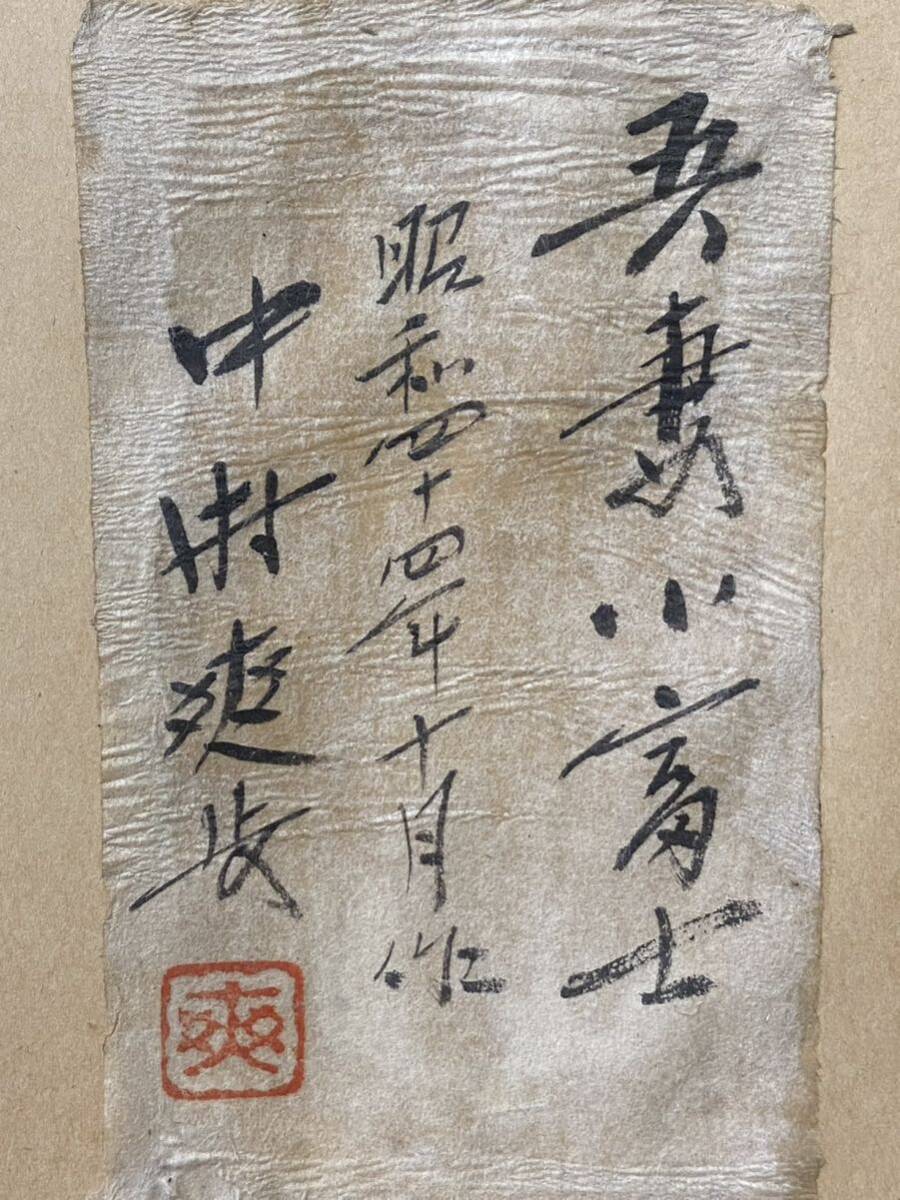 吾妻小富士
昭和四十四年十月作
中村爽歩
爽